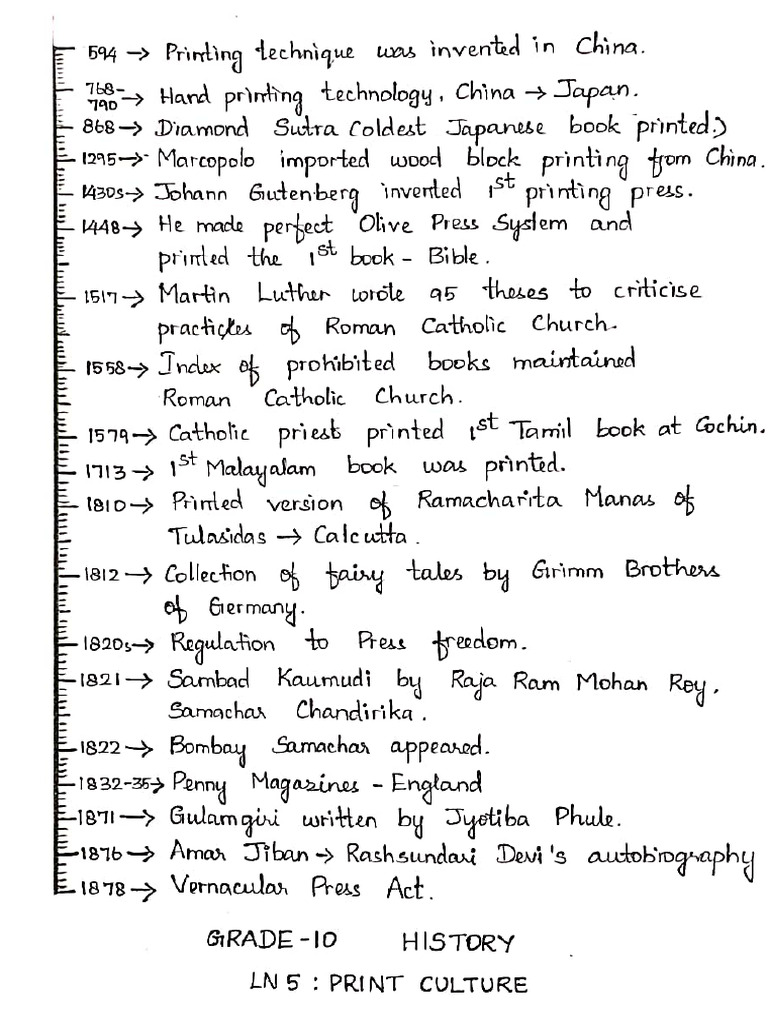 594 → Printing technique was invented in China.
768-790 → Hand printing technology, China → Japan.
868 → Diamond Sutra (oldest Japanese book printed.)
1295 → Marcopolo imported wood block printing from China.
1430s → Johann Gutenberg invented 1st printing press.
1448 → He made perfect Olive Press System and
printed the 1st book - Bible.
1517 → Martin Luther wrote 95 theses to criticise
practices of Roman Catholic Church.
1558 → Index of prohibited books maintained
Roman Catholic Church.
1579 → Catholic priest printed 1st Tamil book at Cochin.
1713 → 1st Malayalam book was printed.
1810 → Printed version of Ramacharita Manas of
Tulasidas → Calcutta.
1812 → Collection of fairy tales by Grimm Brothers
of Germany.
1820s → Regulation to Press freedom.
1821 → Sambad Kaumudi by Raja Ram Mohan Roy,
Samachar Chandirika.
1822 → Bombay Samachar appeared.
1832-35 → Penny Magazines - England
1871 → Gulamgiri written by Jyotiba Phule.
1876 → Amar Jiban → Rashsundari Devi's autobiography
1878 → Vernacular Press Act.
GRADE-10 HISTORY
LN 5 : PRINT CULTURE